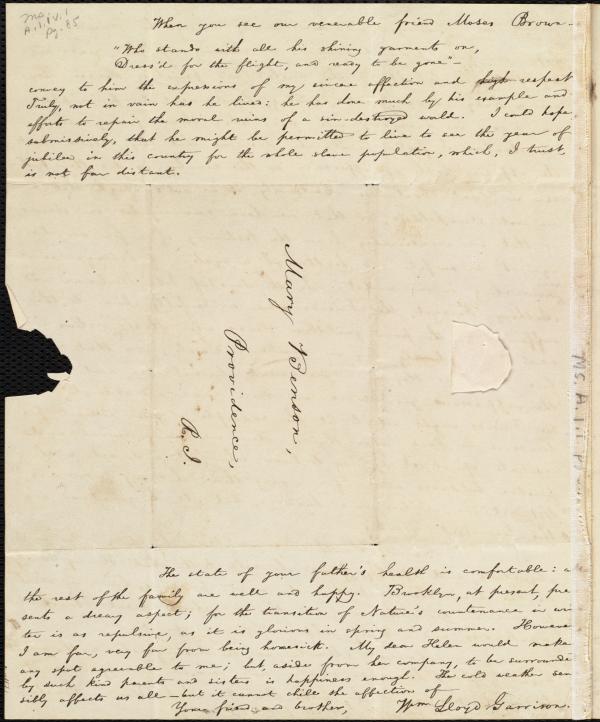 Ms.
A.1.1 v.1
pg. 85
When you see our venerable friend Moses Brown—
"Who stands with all his shining garments on,
Dress'd for the flight, and ready to be gone"—
convey to him the expressions of my sincere affection and high respect
Truly, not in vain has he lived: he has done much by his example and
efforts to repair the moral ruins of a sin-destroyed world. I could hope,
submissively, that he might be permitted to live to see the year of
jubilee in this country for the whole slave population, which, I trust,
is not far distant.
Mary Benson,
Providence,
R. I.
MS. A. 1.1
The state of your father's health is comfortable: a
the rest of the family are well and happy. Brooklyn, at present, pre
sents a dreary aspect; for the transition of Nature's countenance in win
ter is as repulsive, as it is glorious in spring and summer. However
I am far, very far from being homesick. My dear Helen would make
any spot agreeable to me; but, aside from her company, to be surrounde
by such kind parents and sisters is happiness enough. The cold weather sen
sibly affects us all—but it cannot chill the affection of
Your friend and brother, Wm. Lloyd Garrison.